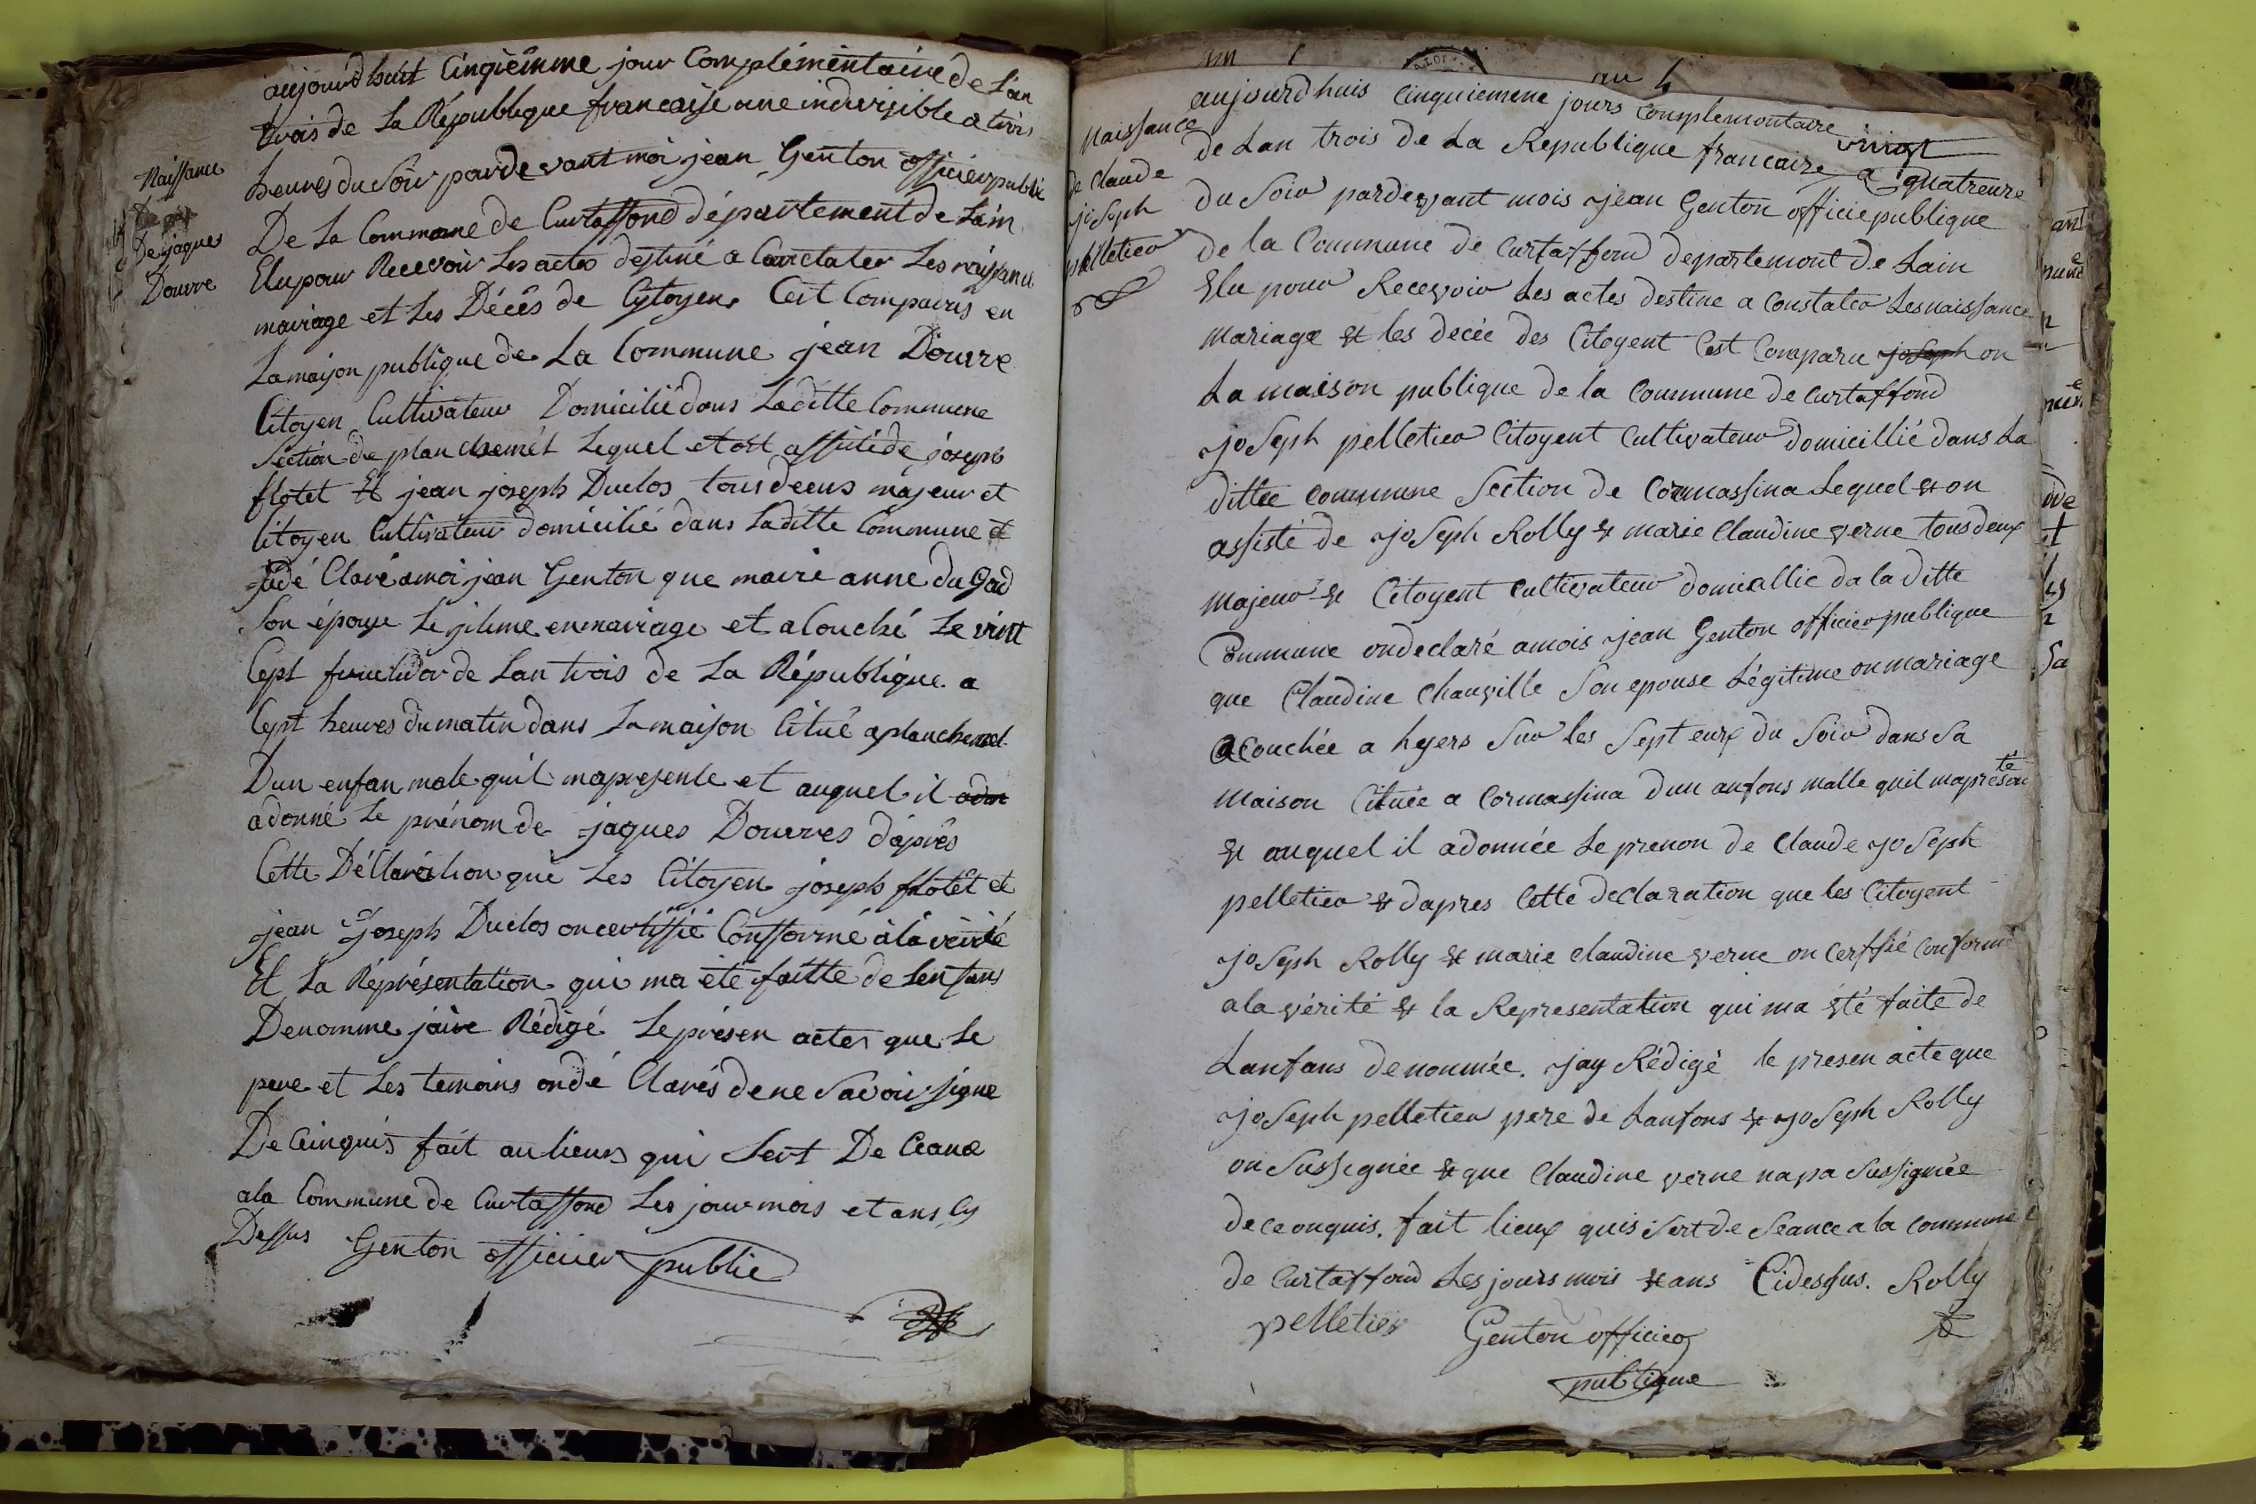 Naissance
De jaques
Douvre
aujourdhuit Cinqiêmme jour Complémentaire de L'an
trois de La République francaise une indivisible a trois
heures du Soir pardevant moi jean Genton officier public
De La Commune de Curtaffond département de Lain
Elu pour Recevoir Les actes destiné a Constater Les naissance
mariage et Les Décês de Cytoyen Cest Comparus en
La maison publique de La Commune jean Douvre
Citoyen Cultivateur Domicilié dans Laditte Commune
Séction de planchemél Lequel etoit assisté de joseph
flotet Et jean joseph Duclos tous deeus majeur et
Citoyen Cultivateur domicilié dans Laditte Commune et
a dé Claré a moi jean Genton que marie anne du Gad
Son épouse Légitime en mariage et a Couché Le vint
Cept fructidor de Lan trois de La République a
Cept heures du matin dans La maison Citué a planchemel
Dun enfan male quil ma presente et auquel il adon
a donné Le prénom de jaques Douvres d'áprês
Cette Déclaration que Les Citoyen joseph flotêt et
jean joseph Duclos on certiffié Confforme à la vérité
Et La Réprésentation qui ma été faitte de Lenfans
Denomme jaive Rédigé Le présen actes que Le
pere et Les temoins ondé Clarés de ne Savoir signe
De Ceinquis fait au lieus qui Sert De Ceance
a la Commune de Curtaffond Les jour mois et ans Cy
Dessus Genton officier public
an 4
naissance
de Claude
joSeph
pelletier
aujourdhuis Cinquiemene jours Complemontaire
de Lan trois de La Republique francaize vingt a quatreure
du Soir pardevant mois jean Genton officie publique
de la Commune de Curtaffond departemont de Lain
Elu pour Recevoir Les actes destine a Constater Les naissance
Mariage et les decée des Citoyent Cest Comparu joseph on
La maison publique de la Commune de Curtaffond
joSeph pelletier Citoyent Cultivateur domicillié dans La
dittee Commune Section de Cormassina Lequel et on
assisté de joSeph Rolly et marie Claudine verne tous deux
Majeur et Citoyent Cultivateur domicallie da la ditte
Commune on declaré a mois jean Genton officier publique
que Claudine Chanville Son epouse Légitime on mariage
acouchée a hyers Sur les Sept eurx du Soir dans Sa
Maison Cituée a Cormassina dun anfons malle quil mapresonté
et auquel il a donnée Le prenon de Claude joSeph
pelletier et dapres Cette declaration que les Citoyent
joSeph Rolly et marie Claudine verne on cerffié Conforme
a la vérité et la Representation qui ma été faite de
Lanfans denommée. jay Rédigé le presen acte que
joSeph pelletier pere de Lanfons et joSeph Rolly
on Sussignée et que Claudine verne na pa Sussignée
de ce onquis. fait lieux quis Sert de Séance a la commune
de Curtaffond Les jours mois et ans Cidessus. Rolly
pelletier Genton officier
publique